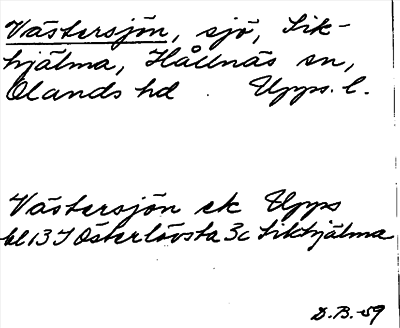 Västersjön, sjö, Sik-
hjälma, Hållnäs sn,
Olands hd. Upps. l.
Västersjön ek Upps
bl 13 I Österlövsta 3c Sikhjälma
D.B.-59